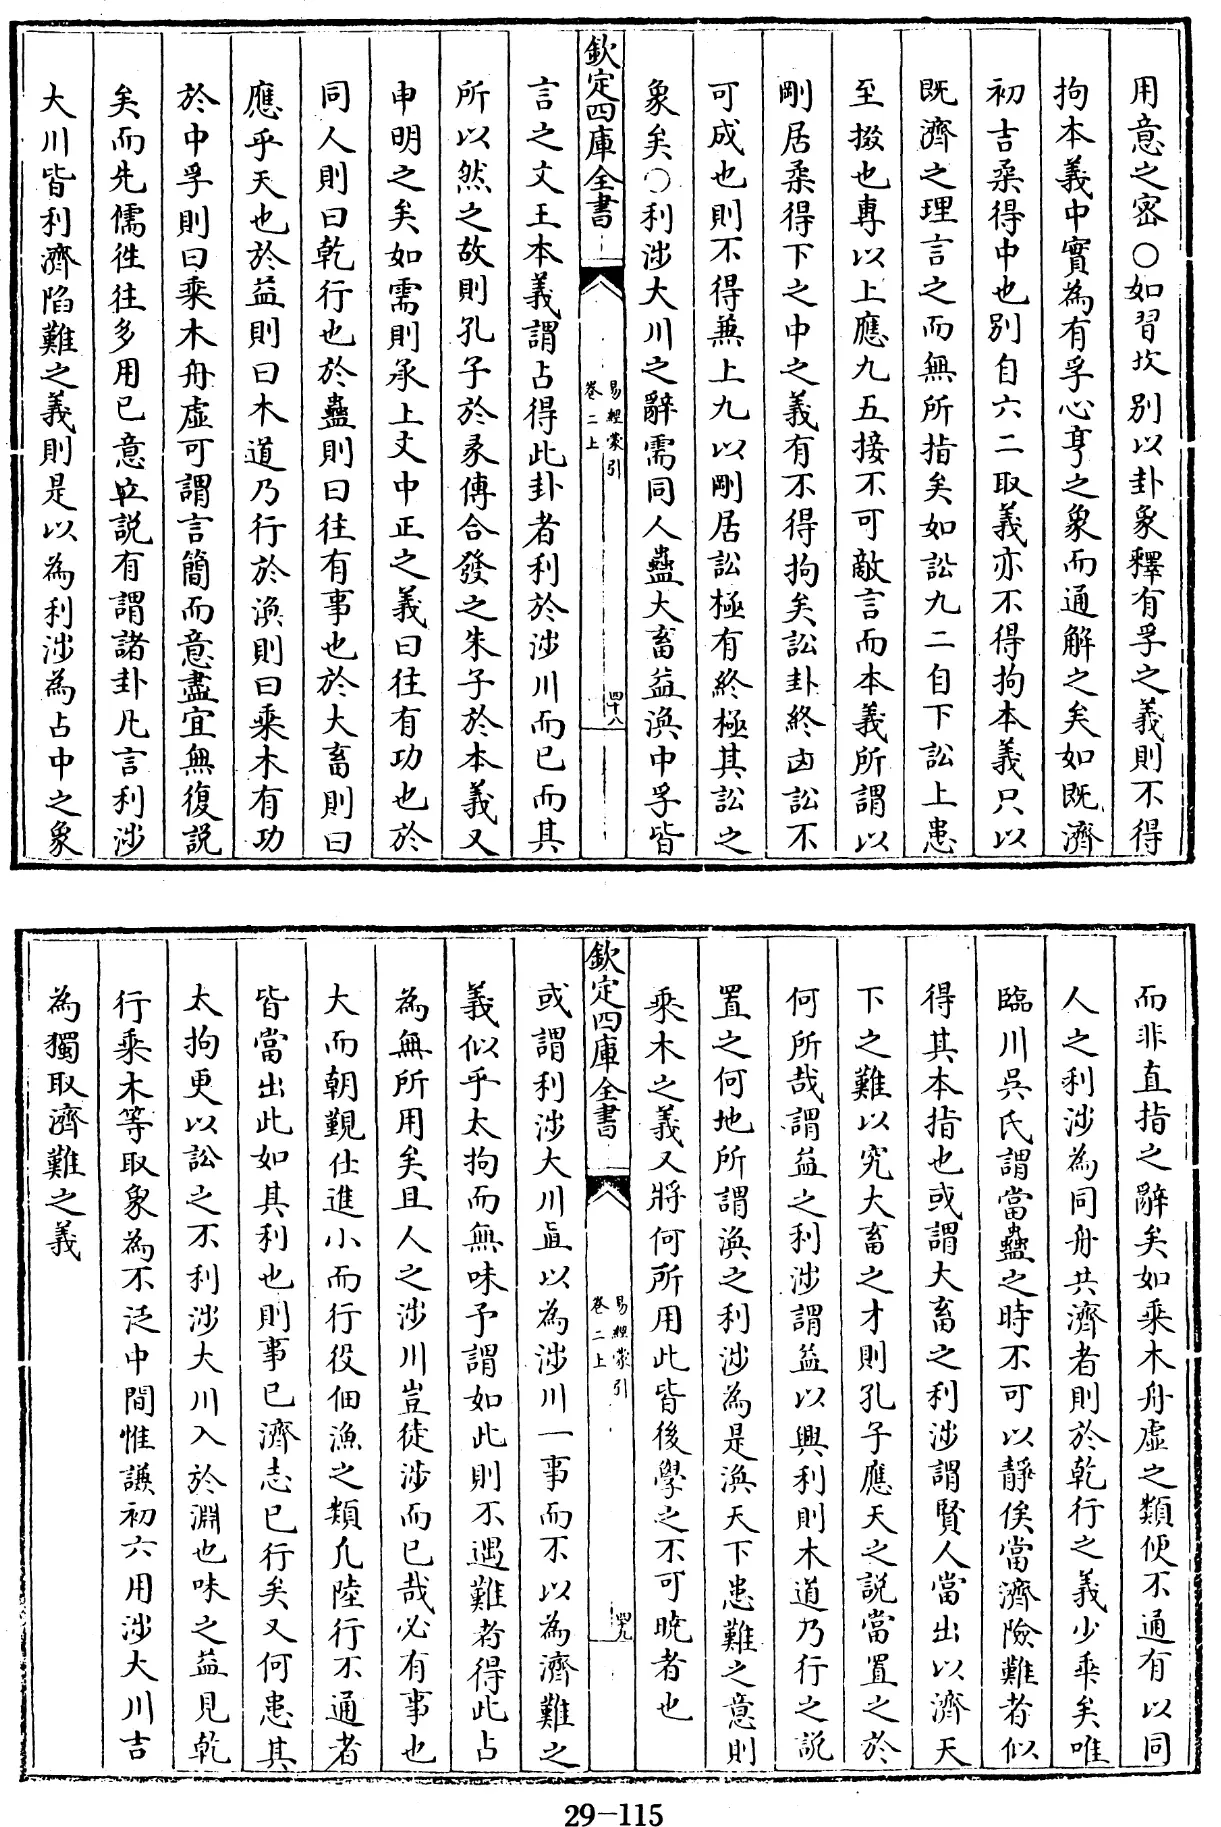 用意之密○如習坎别以卦象釋有孚之義則不得
拘本義中實為有孚心亨之象而通解之矣如既濟
初吉柔得中也别自六二取義亦不得拘本義只以
既濟之理言之而無所指矣如訟九二自下訟上患
至掇也專以上應九五接不可敵言而本義所謂以
剛居柔得下之中之義有不得拘矣訟卦終凶訟不
可成也則不得兼上九以剛居訟極有終極其訟之
象矣○利涉大川之辭需同人蠱大畜益渙中孚皆
欽定四庫全書
易經蒙引
卷二上
四十八
言之文王本義謂占得此卦者利於涉川而已而其
所以然之故則孔子於彖傳合發之朱子於本義又
申明之矣如需則承上文中正之義曰往有功也於
同人則曰乾行也於蠱則曰往有事也於大畜則曰
應乎天也於益則曰木道乃行於渙則曰乘木有功
於中孚則曰乘木舟虛可謂言簡而意盡宜無復說
矣而先儒徃徃多用已意立說有謂諸卦凡言利涉
大川皆利濟陷難之義則是以為利涉為占中之象
而非直指之辭矣如乘木舟虛之類便不通有以同
人之利涉為同舟共濟者則於乾行之義少乖矣唯
臨川吳氏謂當蠱之時不可以靜俟當濟險難者似
得其本指也或謂大畜之利涉謂賢人當出以濟天
下之難以究大畜之才則孔子應天之說當置之於
何所哉謂益之利涉謂益以興利則木道乃行之說
置之何地所謂渙之利涉為是渙天下患難之意則
乘木之義又將何所用此皆後學之不可曉者也
欽定四庫全書
易經蒙引
卷二上
四十九
或謂利涉大川直以為涉川一事而不以為濟難之
義似乎太拘而無味予謂如此則不遇難者得此占
為無所用矣且人之涉川豈徒涉而已哉必有事也
大而朝覲仕進小而行役佃漁之類凡陸行不通者
皆當出此如其利也則事已濟志已行矣又何患其
太拘更以訟之不利涉大川入於淵也味之益見乾
行乘木等取象為不泛中間惟謙初六用涉大川吉
為獨取濟難之義
29-115